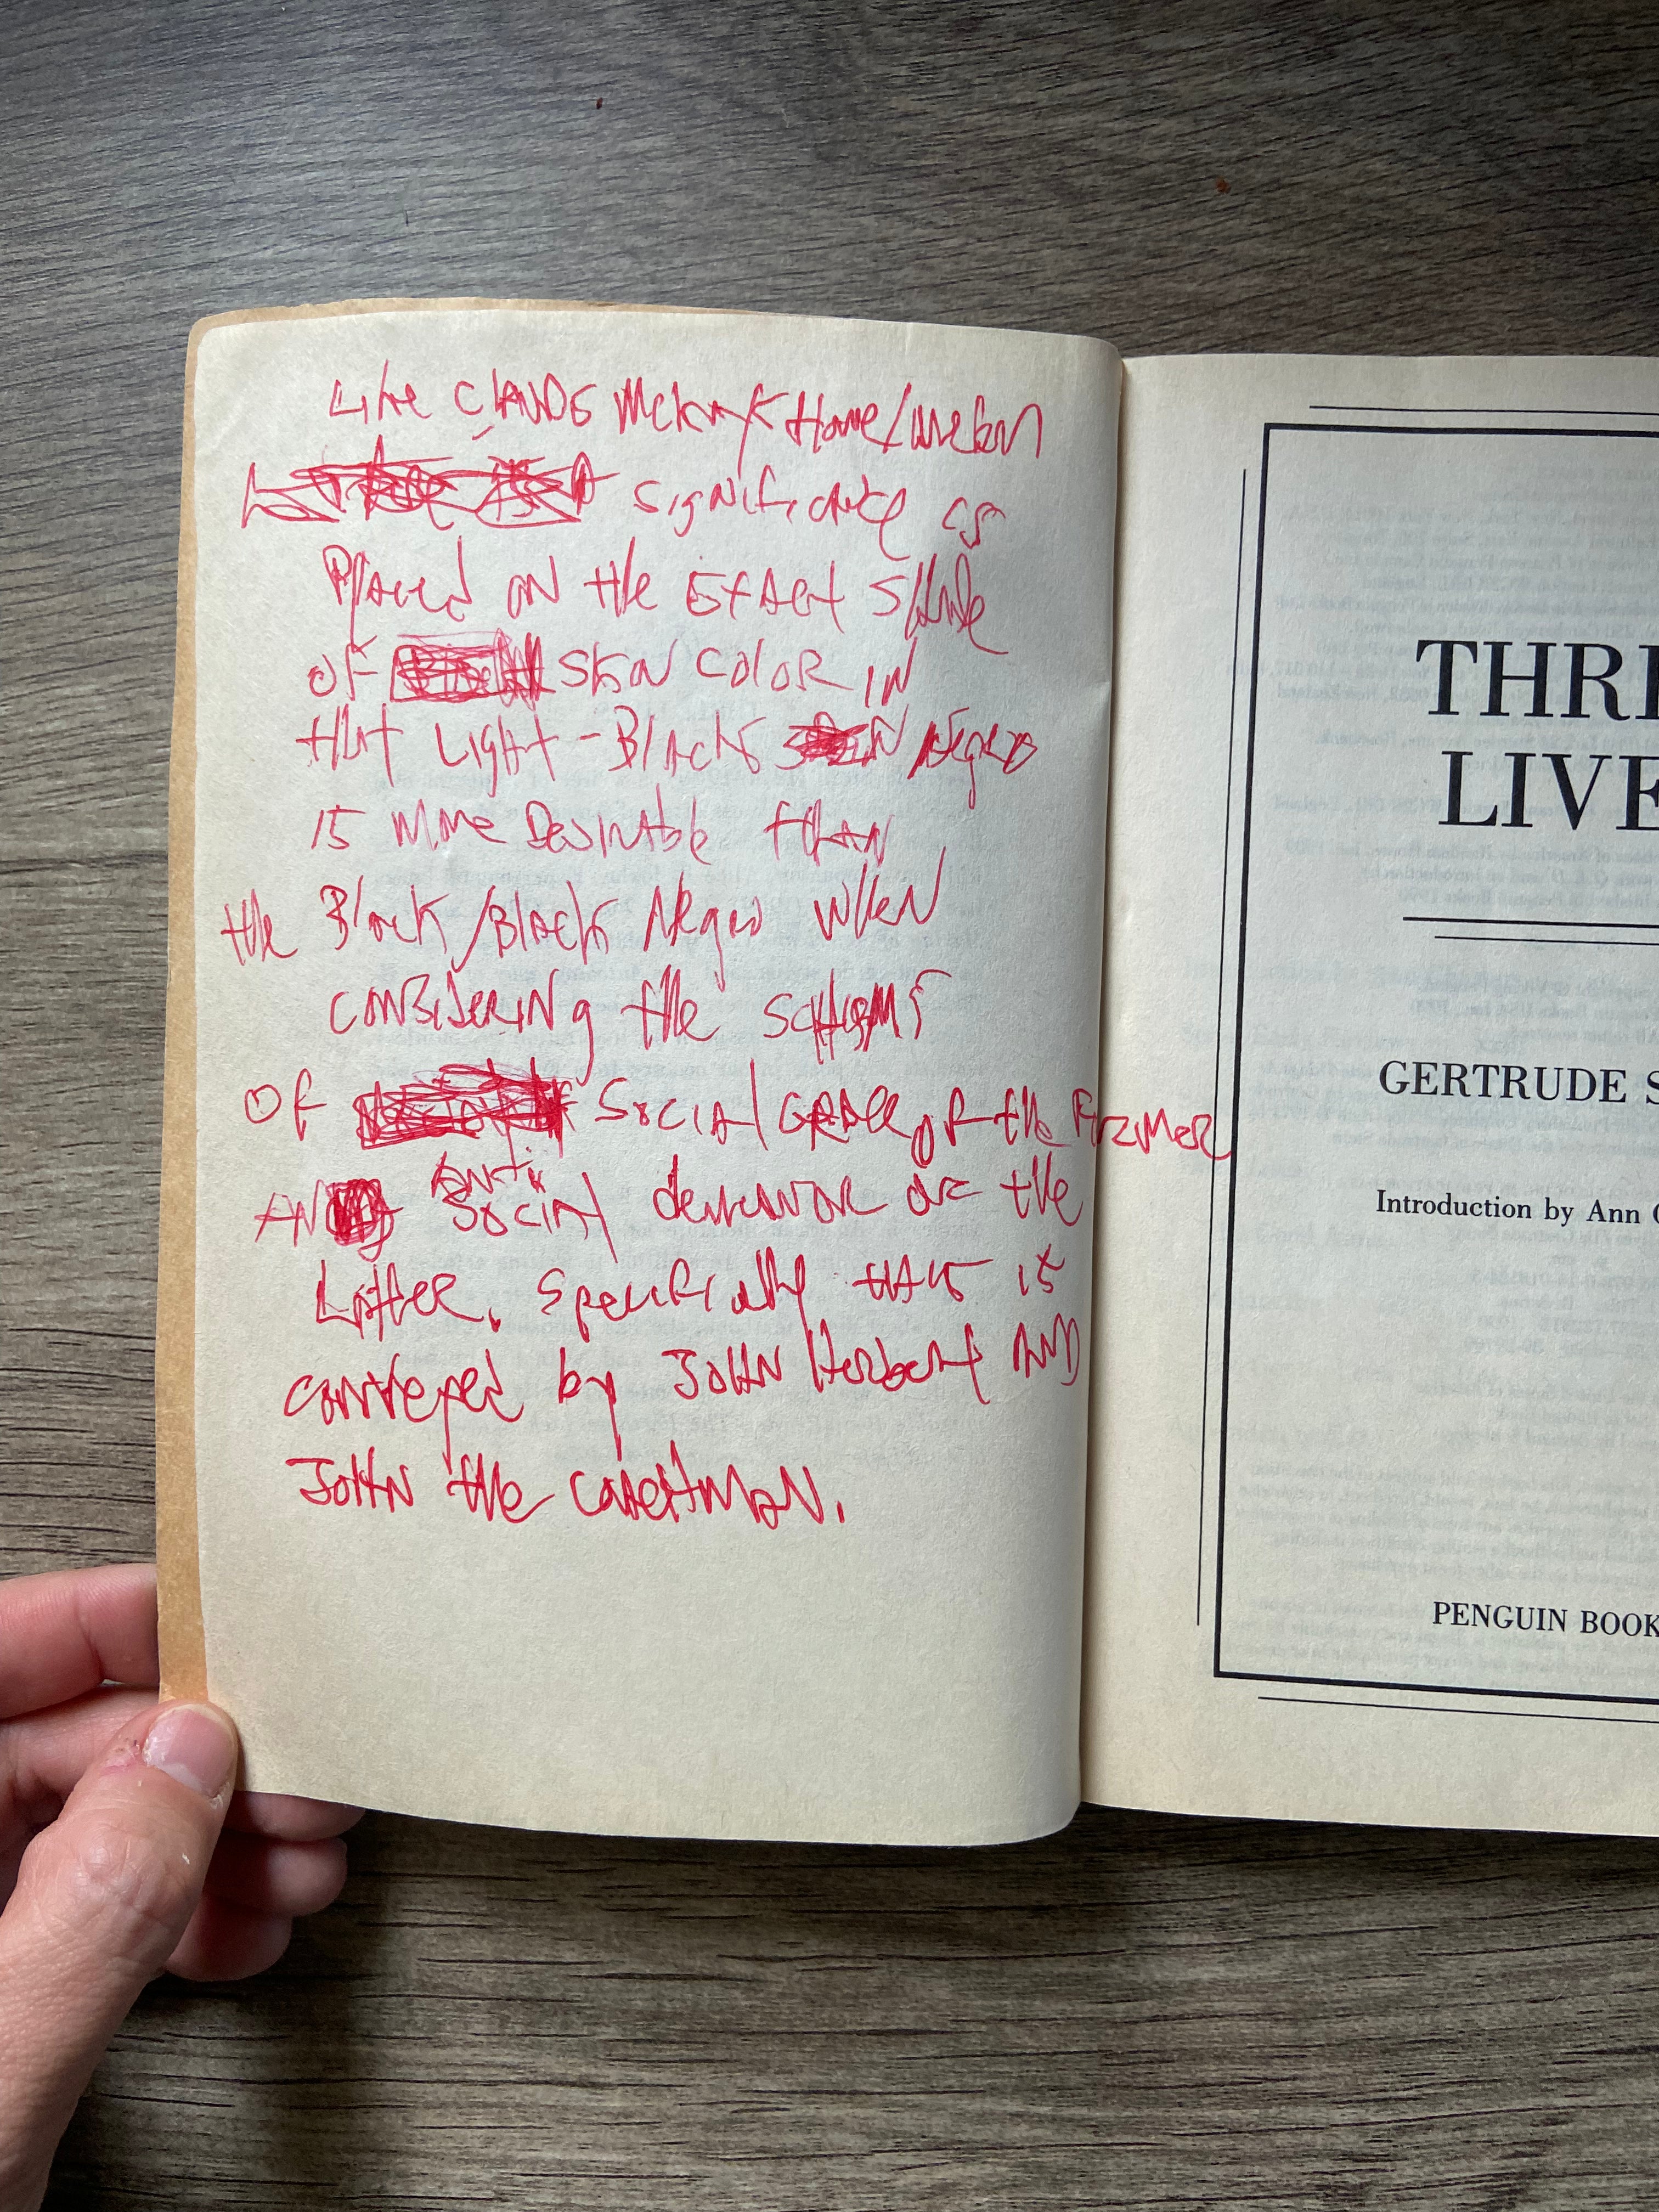 Like CLAUDE McKay Home/
significance is
Placed on the EXACT Shade
OF SKIN COLOR IN
that Light-Black Negro
is more Desirable than
the Black/Black Negro when
CONSIDERING the
OF SOCIAL GRACE OF the FORMER
AND ANTI SOCIAL of the
Latter. Specifically this is
conveyed by JOHN Herbert AND
JOHN the
THRE
LIVE
GERTRUDE S
Introduction by Ann
PENGUIN BOOK